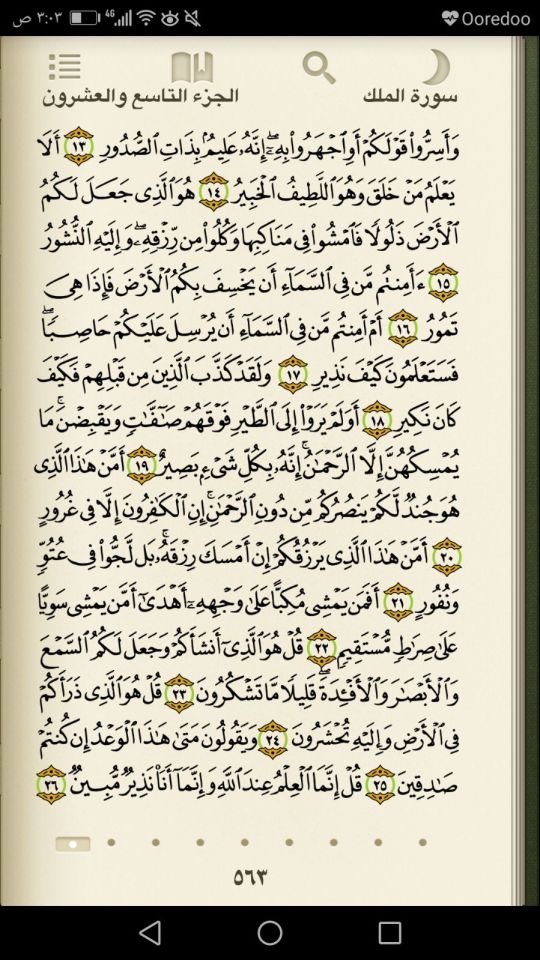 ٣:٠٣ ص 4G Ooredoo
سورة الملك الجزء التاسع والعشرون
وَأَسِرُّوا۟ قَوْلَكُمْ أَوِ ٱجْهَرُوا۟ بِهِۦٓ ۖ إِنَّهُۥ عَلِيمٌۢ بِذَاتِ ٱلصُّدُورِ ١٣ أَلَا
يَعْلَمُ مَنْ خَلَقَ وَهُوَ ٱللَّطِيفُ ٱلْخَبِيرُ ١٤ هُوَ ٱلَّذِى جَعَلَ لَكُمُ
ٱلْأَرْضَ ذَلُولًا فَٱمْشُوا۟ فِى مَنَاكِبِهَا وَكُلُوا۟ مِن رِّزْقِهِۦ ۖ وَإِلَيْهِ ٱلنُّشُورُ
١٥ ءَأَمِنتُم مَّن فِى ٱلسَّمَآءِ أَن يَخْسِفَ بِكُمُ ٱلْأَرْضَ فَإِذَا هِىَ
تَمُورُ ١٦ أَمْ أَمِنتُم مَّن فِى ٱلسَّمَآءِ أَن يُرْسِلَ عَلَيْكُمْ حَاصِبًا ۖ
فَسَتَعْلَمُونَ كَيْفَ نَذِيرِ ١٧ وَلَقَدْ كَذَّبَ ٱلَّذِينَ مِن قَبْلِهِمْ فَكَيْفَ
كَانَ نَكِيرِ ١٨ أَوَلَمْ يَرَوْا۟ إِلَى ٱلطَّيْرِ فَوْقَهُمْ صَٰٓفَّٰتٍ وَيَقْبِضْنَ ۚ مَا
يُمْسِكُهُنَّ إِلَّا ٱلرَّحْمَٰنُ ۚ إِنَّهُۥ بِكُلِّ شَىْءٍۭ بَصِيرٌ ١٩ أَمَّنْ هَٰذَا ٱلَّذِى
هُوَ جُندٌ لَّكُمْ يَنصُرُكُم مِّن دُونِ ٱلرَّحْمَٰنِ ۚ إِنِ ٱلْكَٰفِرُونَ إِلَّا فِى غُرُورٍ
٢٠ أَمَّنْ هَٰذَا ٱلَّذِى يَرْزُقُكُمْ إِنْ أَمْسَكَ رِزْقَهُۥ ۚ بَل لَّجُّوا۟ فِى عُتُوٍّ
وَنُفُورٍ ٢١ أَفَمَن يَمْشِى مُكِبًّا عَلَىٰ وَجْهِهِۦٓ أَهْدَىٰٓ أَمَّن يَمْشِى سَوِيًّا
عَلَىٰ صِرَٰطٍ مُّسْتَقِيمٍ ٢٢ قُلْ هُوَ ٱلَّذِىٓ أَنشَأَكُمْ وَجَعَلَ لَكُمُ ٱلسَّمْعَ
وَٱلْأَبْصَٰرَ وَٱلْأَفْـِٔدَةَ ۖ قَلِيلًا مَّا تَشْكُرُونَ ٢٣ قُلْ هُوَ ٱلَّذِى ذَرَأَكُمْ
فِى ٱلْأَرْضِ وَإِلَيْهِ تُحْشَرُونَ ٢٤ وَيَقُولُونَ مَتَىٰ هَٰذَا ٱلْوَعْدُ إِن كُنتُمْ
صَٰدِقِينَ ٢٥ قُلْ إِنَّمَا ٱلْعِلْمُ عِندَ ٱللَّهِ وَإِنَّمَآ أَنَا۠ نَذِيرٌ مُّبِينٌ ٢٦
٥٦٣